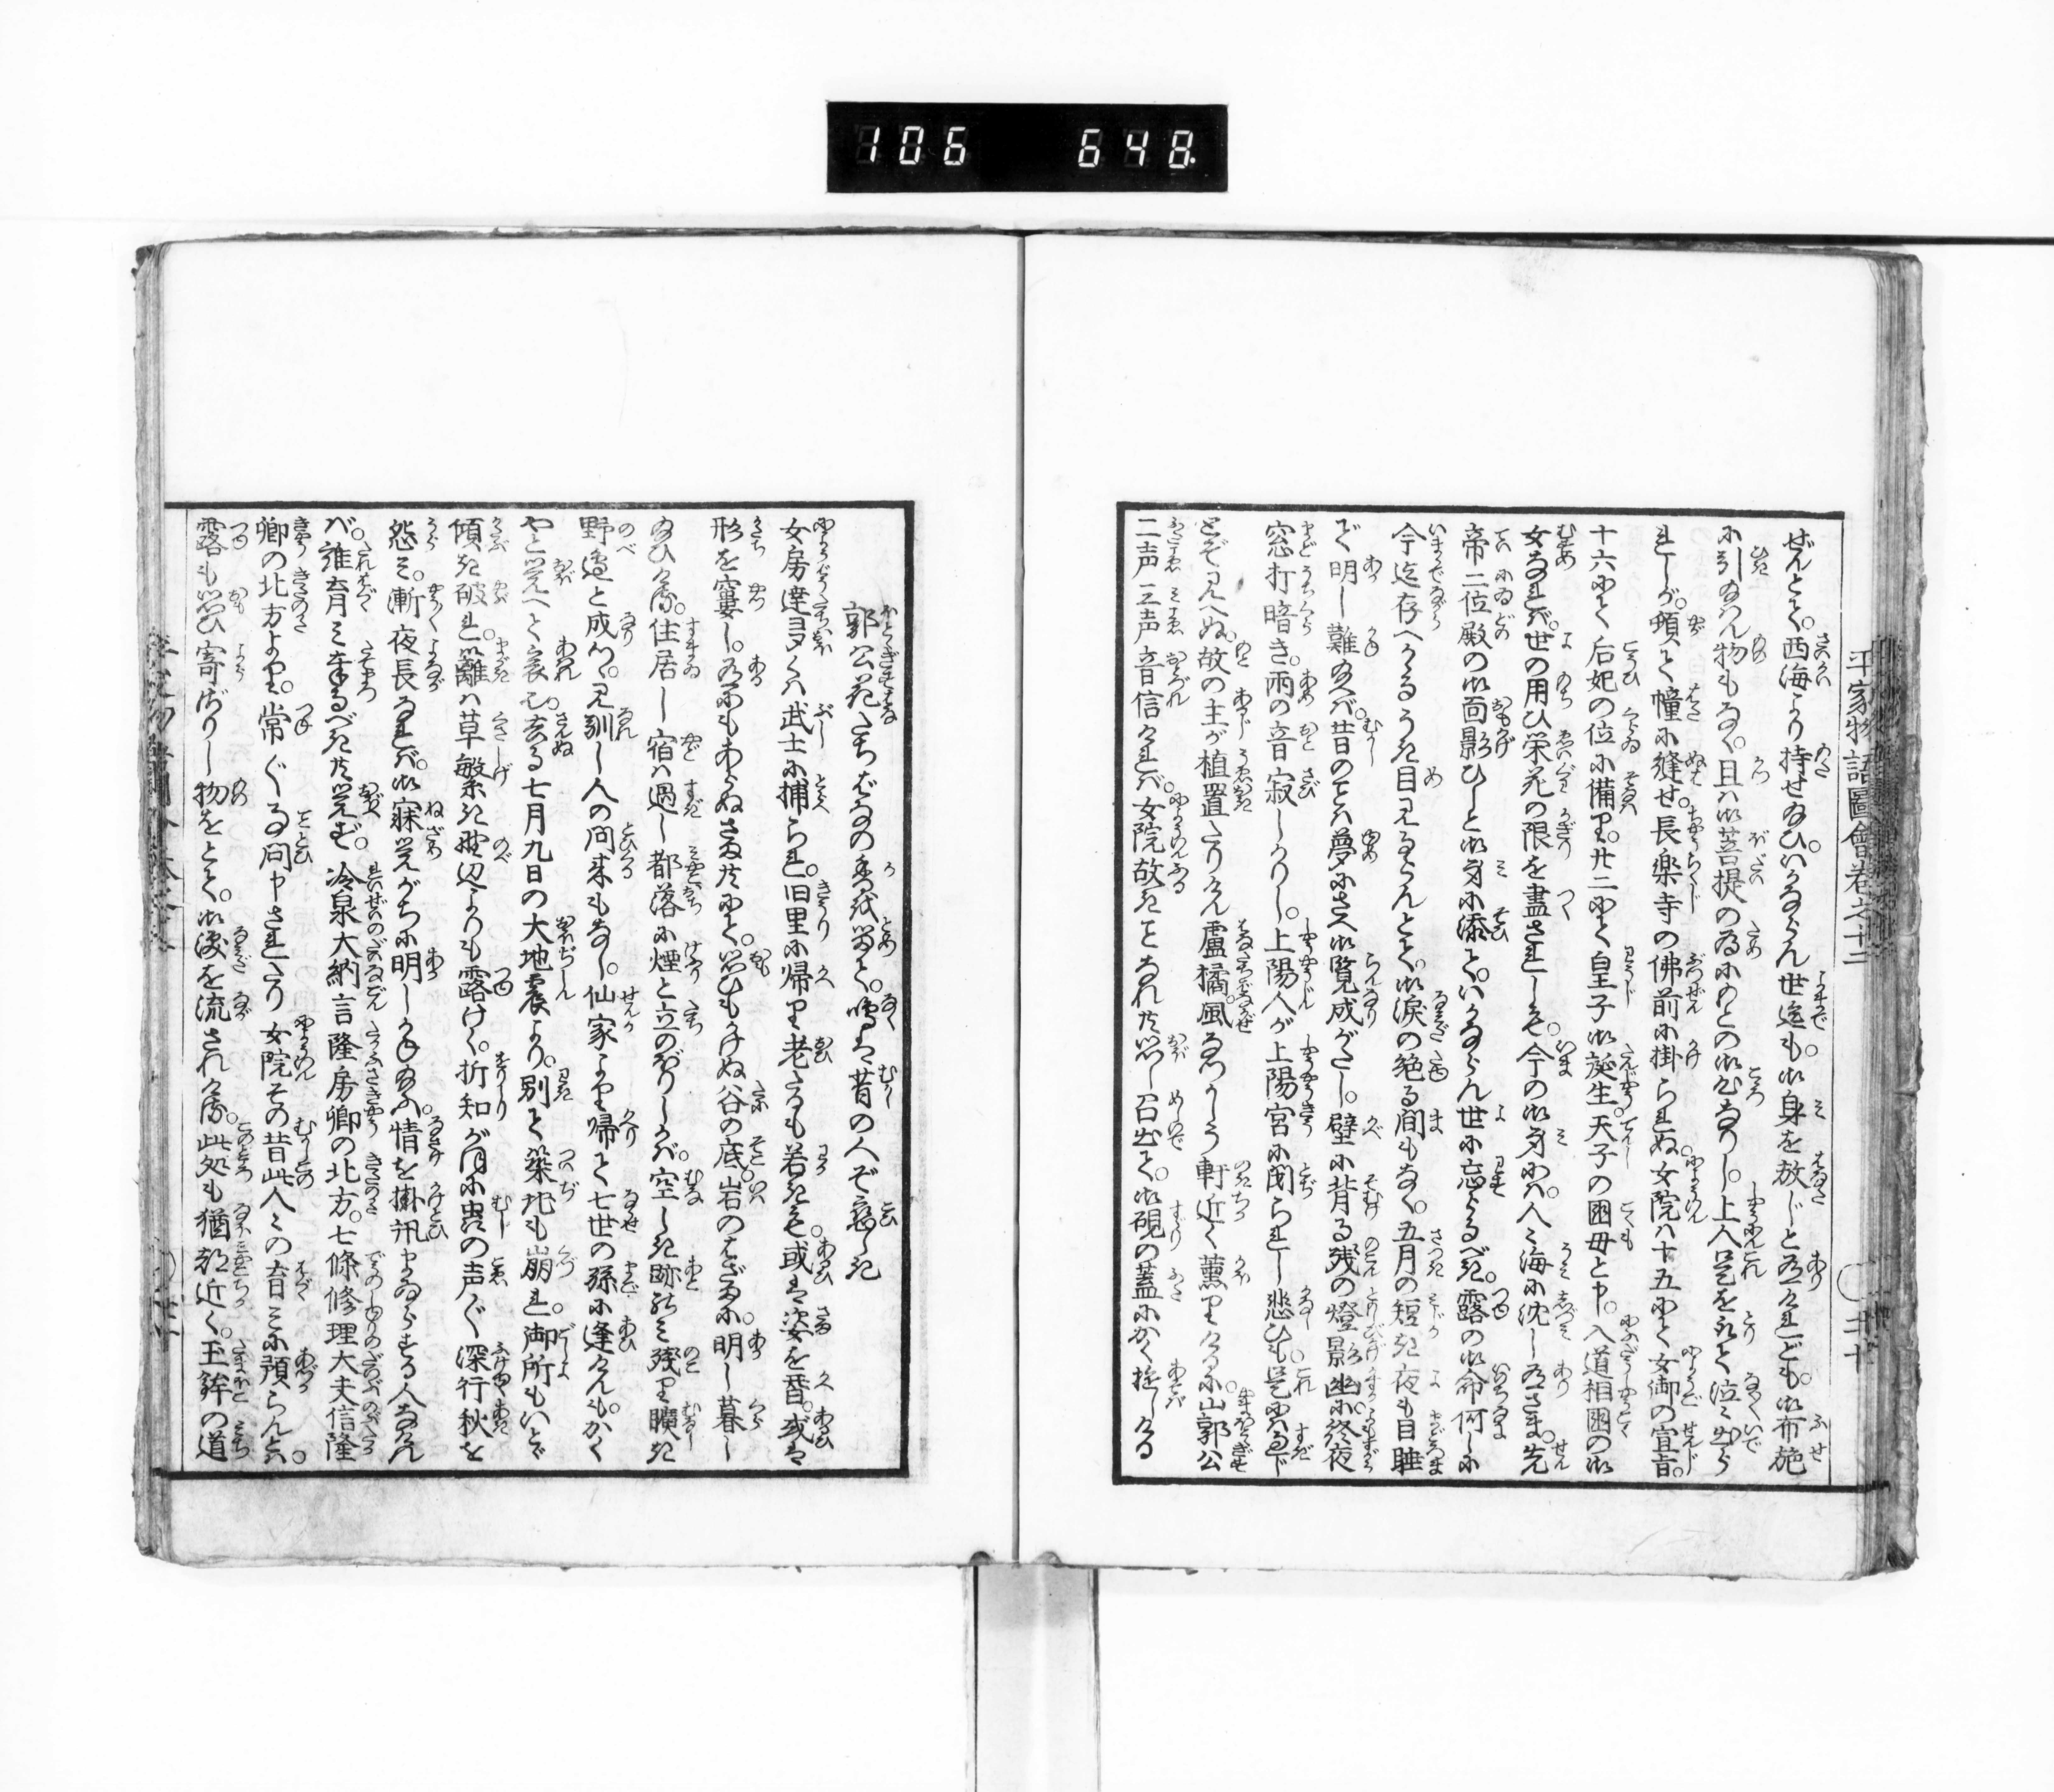 106 648.
平家物語圖會巻之十二
ぜんとて。西海より持せ給ひ。いかならん世迄も。御身を放じと為けれども。御布施
に引給はん物もなく。且は御菩提の為にとの御心なりし。上人是を取て泣々出ら
れしが。頓て幢に縫せ。長楽寺の佛前に掛られぬ。女院は十五にて女御の宣旨。
十六にて后妃の位に備り。廿二にて皇子御誕生。天子の国母と申。入道相国の御
女なれば。世の用ひ栄花の限を盡されしも。今の御身には。人々海に沈し為さま。先
帝二位殿の御面影ひしと御身に添て。いかならん世に忘るべき。露の御命何しに
今迄存へかゝるうき目見るらんとて。御涙の絶る間もなく。五月の短き夜も目睡
で明し難給へば。昔のことは夢にさへ御覧成がたし。壁に背る残の燈影幽に。終夜
窓打暗き。雨の音寂しかりし。上陽人が上陽宮に閉られし悲も。是には過じ
とぞ見へぬ。故の主が植置たりけん盧橘。風なつかしう軒近く薫りけるに。山郭公
二声三声音信ければ。女院故きことなれ共思し召出て。御硯の蓋にかく遊しける
郭公花たちばなの香を留て。鳴は昔の人ぞ恋しき
女房達多くは武士に捕られ。旧里に帰り老たるも若きも。或は姿を替。或は
形を窶し。為にもあらぬさま共にて。思ひもかけぬ谷の底。岩のはざまに。明し暮し
給ひける。住居し宿は過し都落に煙と立のぼりしかば。空しき跡のみ残り曠き
野邊と成つ。見馴し人の問来もなし。仙家より帰て七世の孫に逢けんもかく
やと覚へて哀也。去る七月九日の大地震より。別て築地も崩れ。御所もいとゞ
傾き破れ。籬は草繁き野辺よりも露けく。折知がほに虫の声々。深行秋を
怨み。漸夜長なれば。御寐覚がちに明しかね給ふ。情を掛訊まゐらする人なけれ
ば。誰育み奉るべき共覚ず。冷泉大納言隆房卿の北方。七條修理大夫信隆
卿の北方より。常々事問申されたり女院その昔此人々の育みに預らんとは。
露も思ひ寄ざりし物をとて。御涙を流されける。此処も猶都近く。玉鉾の道